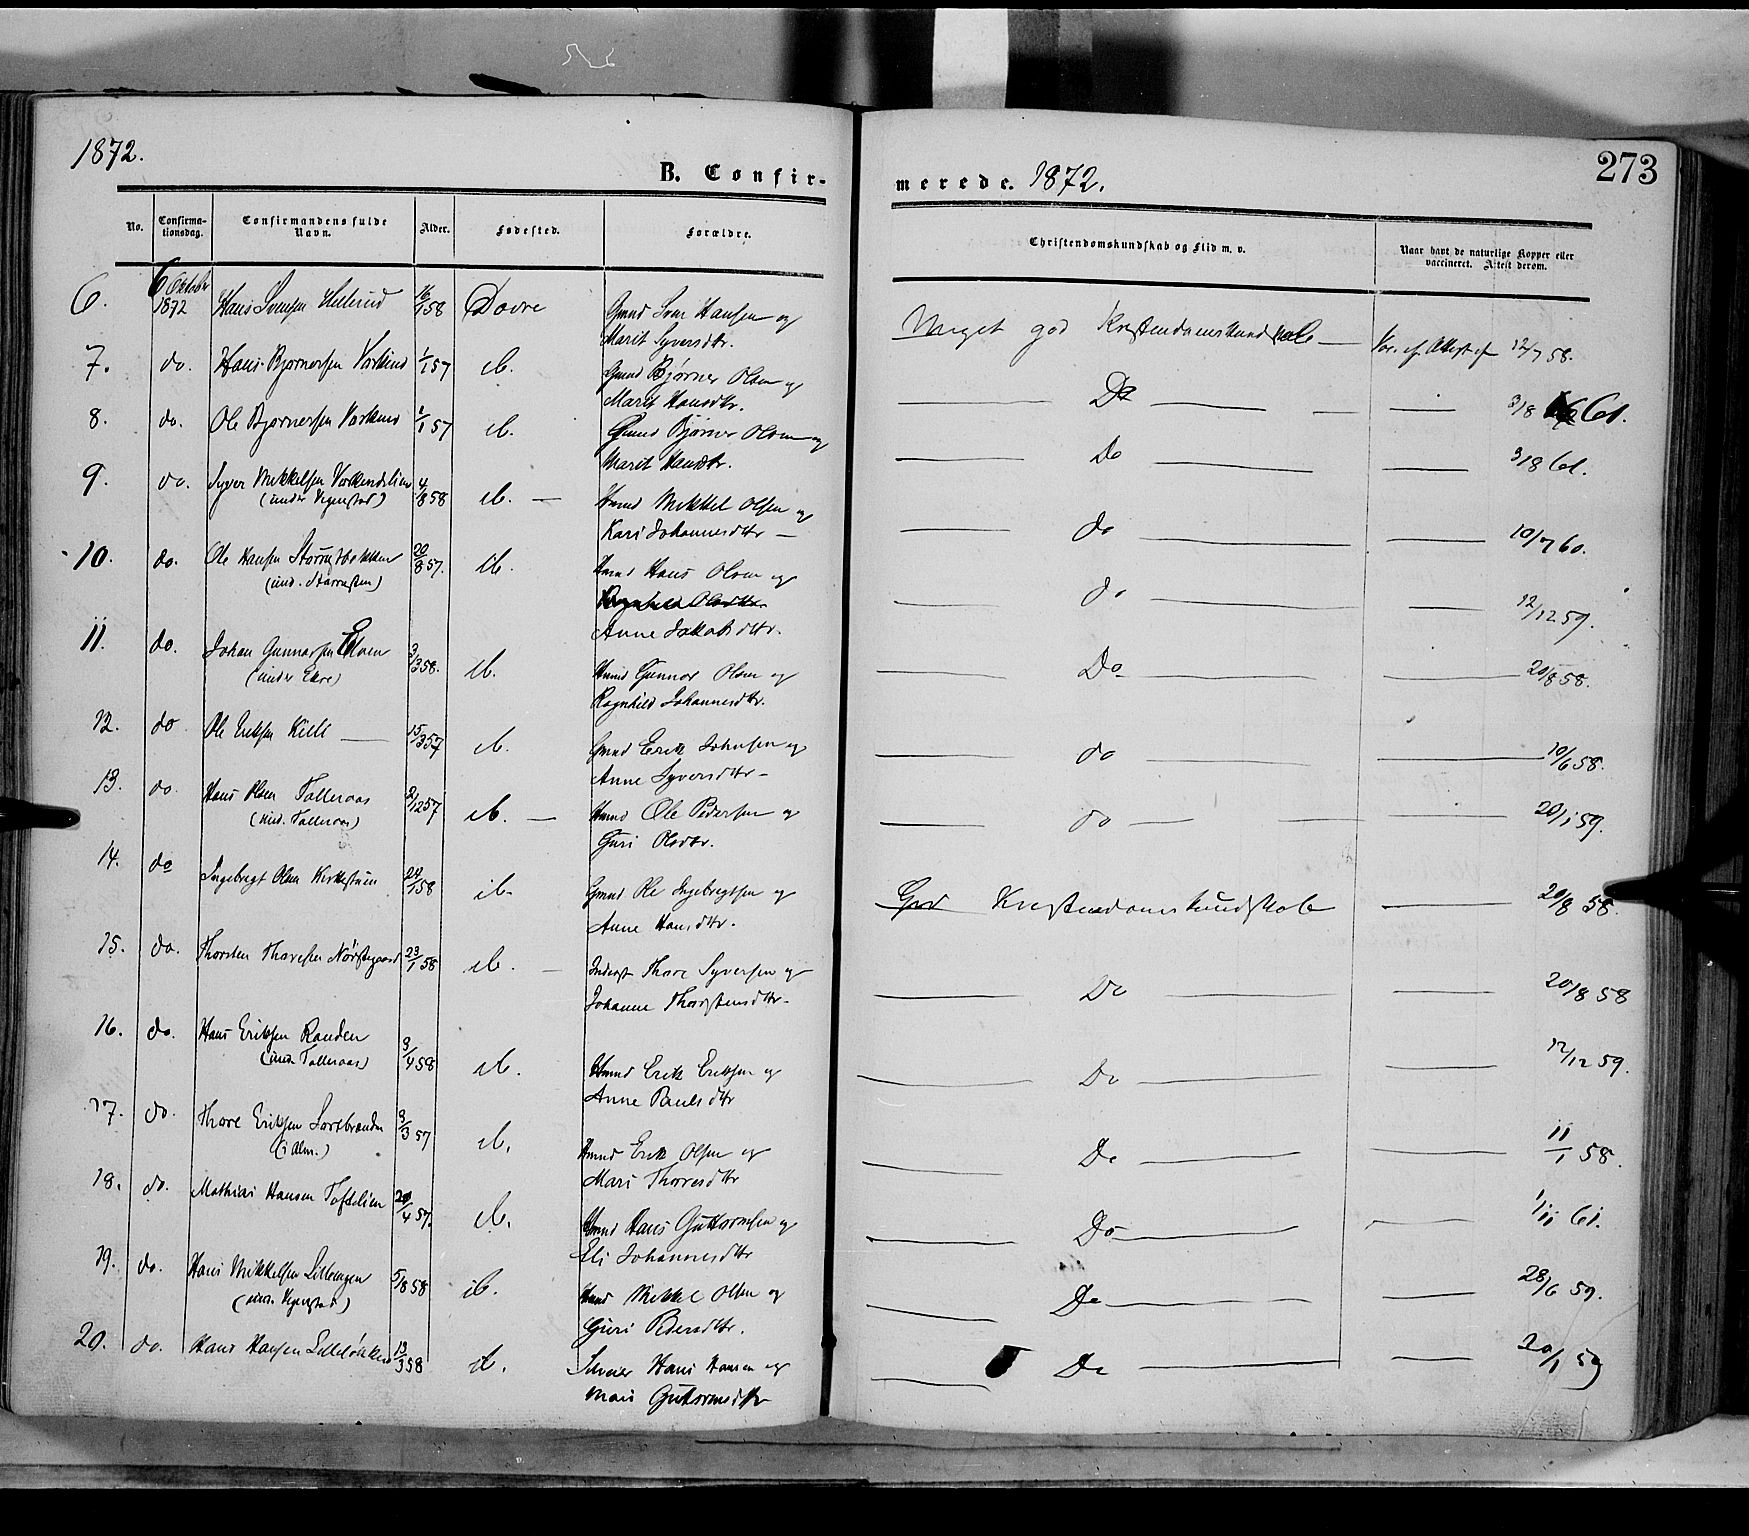 1872.
B. Confir-
merede. 1872.
273
No.
Confirma-
tionsdag.
Confirmandens fulde
Navn.
Alder.
Fødested.
Forældre.
Christendomskundskab og Flid m. v.
Naar havt de naturlige Kopper eller
vaccineret. Attest derom.
6. 6 Oktober 1872 Hans Svensen 16/1 58 Dovre Gmd Sven Hansen og
Marit Syversdtr.
Meget god Kristendomskundskab — Vac. Attest af 12/7 58.
7. do. Hans Bjørnersen 1/1 57 ib. Gmd Bjørner Olsen og
Marit Hansdtr.
Do 3/8 61.
8. do. Ole Bjørnersen 1/1 57 ib. Gmd Bjørner Olsen og
Marit Hansdtr.
Do 3/8 61.
9. do. Syver Mikkelsen 4/8 58 ib. — Hmd Mikkel Olsen og
Kari Johannesdtr —
do 10/7 60.
10. do. Ole Hansen 20/8 57. ib. Hmd Hans Olsen og
Ragnhild Olsdtr.
Anne Jakobsdtr.
do 12/12 59.
11. do. Johan Gunnarsen
(under Ekre) 3/3 58. ib. Hmd Gunnar Olsen og
Ragnhild Johannesdtr.
Do 20/8 58.
12. do Ole Eriksen — 15/3 57 ib. Gmd Erik Johnsen og
Anne Syversdtr —
do 10/6 58.
13. do. Hans Olsen Talleraas
(und. Talleraas) 2/12 57 ib. — Hmd Ole Pedersen og
Guri Olsdtr.
do 20/1 59.
14. do Ingebrigt Olsen 24/1 58 ib. Gmd Ole Ingebrigtsen og
Anne Hansdtr.
God Kristendomskundskab 20/8 58.
15. do. Thorsten Thoresen 23/1 58 ib. — Thore Syversen og
Johanne Thorstensdtr.
Do 20/8 58
16. do. Hans Eriksen Randen
(und. Talleraas) 3/4 58 ib. Hmd Erik Eriksen og
Anne Paulsdtr
Do 12/12 59.
17. do. Thore Eriksen
(i Alm.) 3/3 57 ib. Hmd Erik Olsen og
Mari Thoresdtr
Do 11/1 58.
18. do. Mathias Hansen Toftelien 20/4 57. ib. Hmd Hans Guttormsen og
Eli Johannesdtr
Do 1/11 61.
19. do. Hans Mikkelsen 5/8 58 ib. Hmd Mikkel Olsen og
Guri Pedersdtr.
Do 28/6 59.
20. do. Hans Hansen 13/3 58 ib. Hans Hansen og
Mari Guttormsdtr
Do 20/1 59